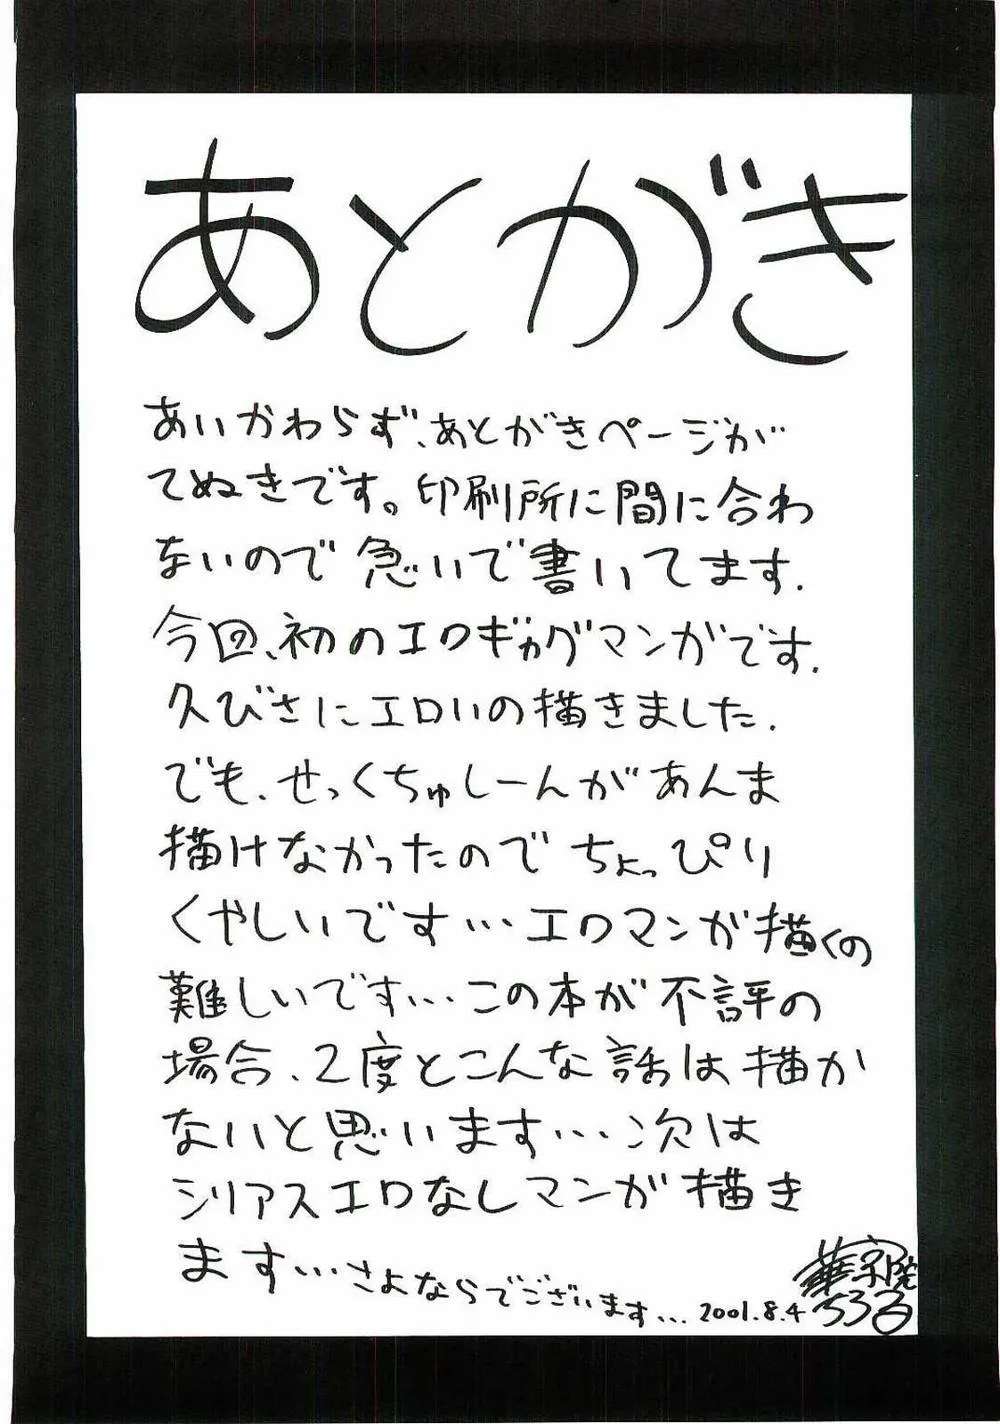 あとがき
あいかわらず、あとがきページが
てぬきです。印刷所に間に合わ
ないので急いで書いてます.
今回、初のエロギャグマンガです.
久びさにエロいの描きました.
でも、せっくちゅしーんがあんま
描けなかったのでちょっぴり
くやしいです…エロマンガ描くの
難しいです…この本が不評の
場合、2度とこんな話は描か
ないと思います…次は
シリアスエロなしマンガ描き
ます…さよならでございます… 2001.8.4
ちるる